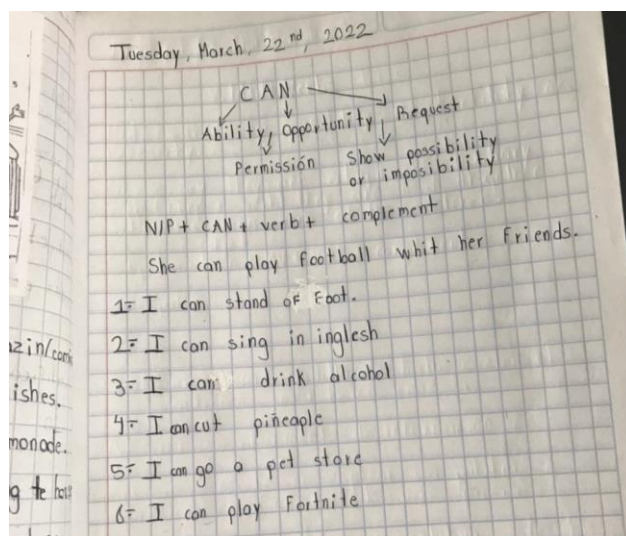 Tuesday, March, 22nd, 2022
CAN
Ability, Opportunity, Request
Permissión Show possibility
or imposibility
N/P + CAN + verb + complement
She can play football whit her Friends.
1= I can stand of Foot.
2= I can sing in inglesh
3= I can drink alcohol
4= I can cut piñeaple
5= I can go a pet store
6= I can play Fortnite
ishes.
monade.